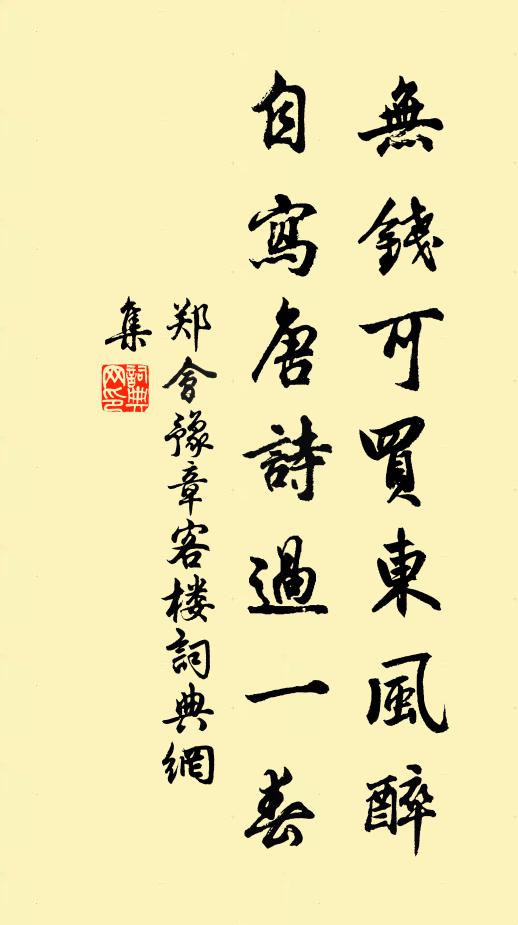 無錢可買東風醉
自寫唐詩過一春
郑會豫章客楼詞典網
集
詞典
网印